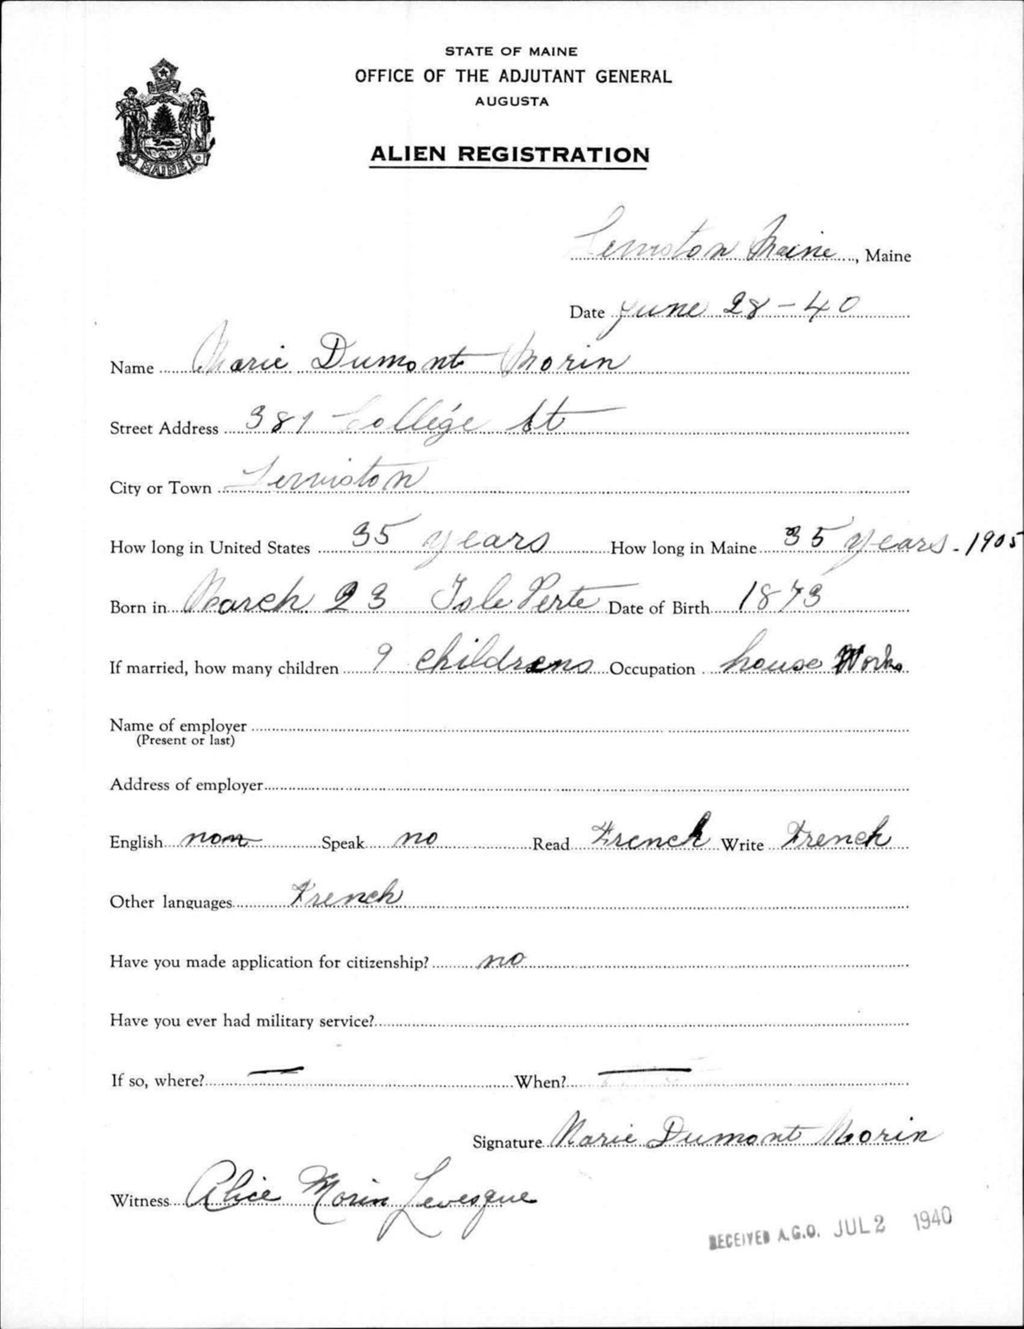 STATE OF MAINE
OFFICE OF THE ADJUTANT GENERAL
AUGUSTA
ALIEN REGISTRATION
MAINE
Lewiston Maine, Maine
Date June 28-40
Name Marie Dumont Morin
Street Address 381 College St
City or Town Lewiston
How long in United States 35 years How long in Maine 35 years - 1905
Born in March 23 Isle Verte Date of Birth 1873
If married, how many children 9 childrens Occupation house Works
Name of employer
(Present or last)
Address of employer
English non Speak no Read French Write French
Other languages French
Have you made application for citizenship? no
Have you ever had military service?
If so, where? — When? —
Signature Marie Dumont Morin
Witness Alice Morin Levesque
RECEIVED A.G.O. JUL 2 1940